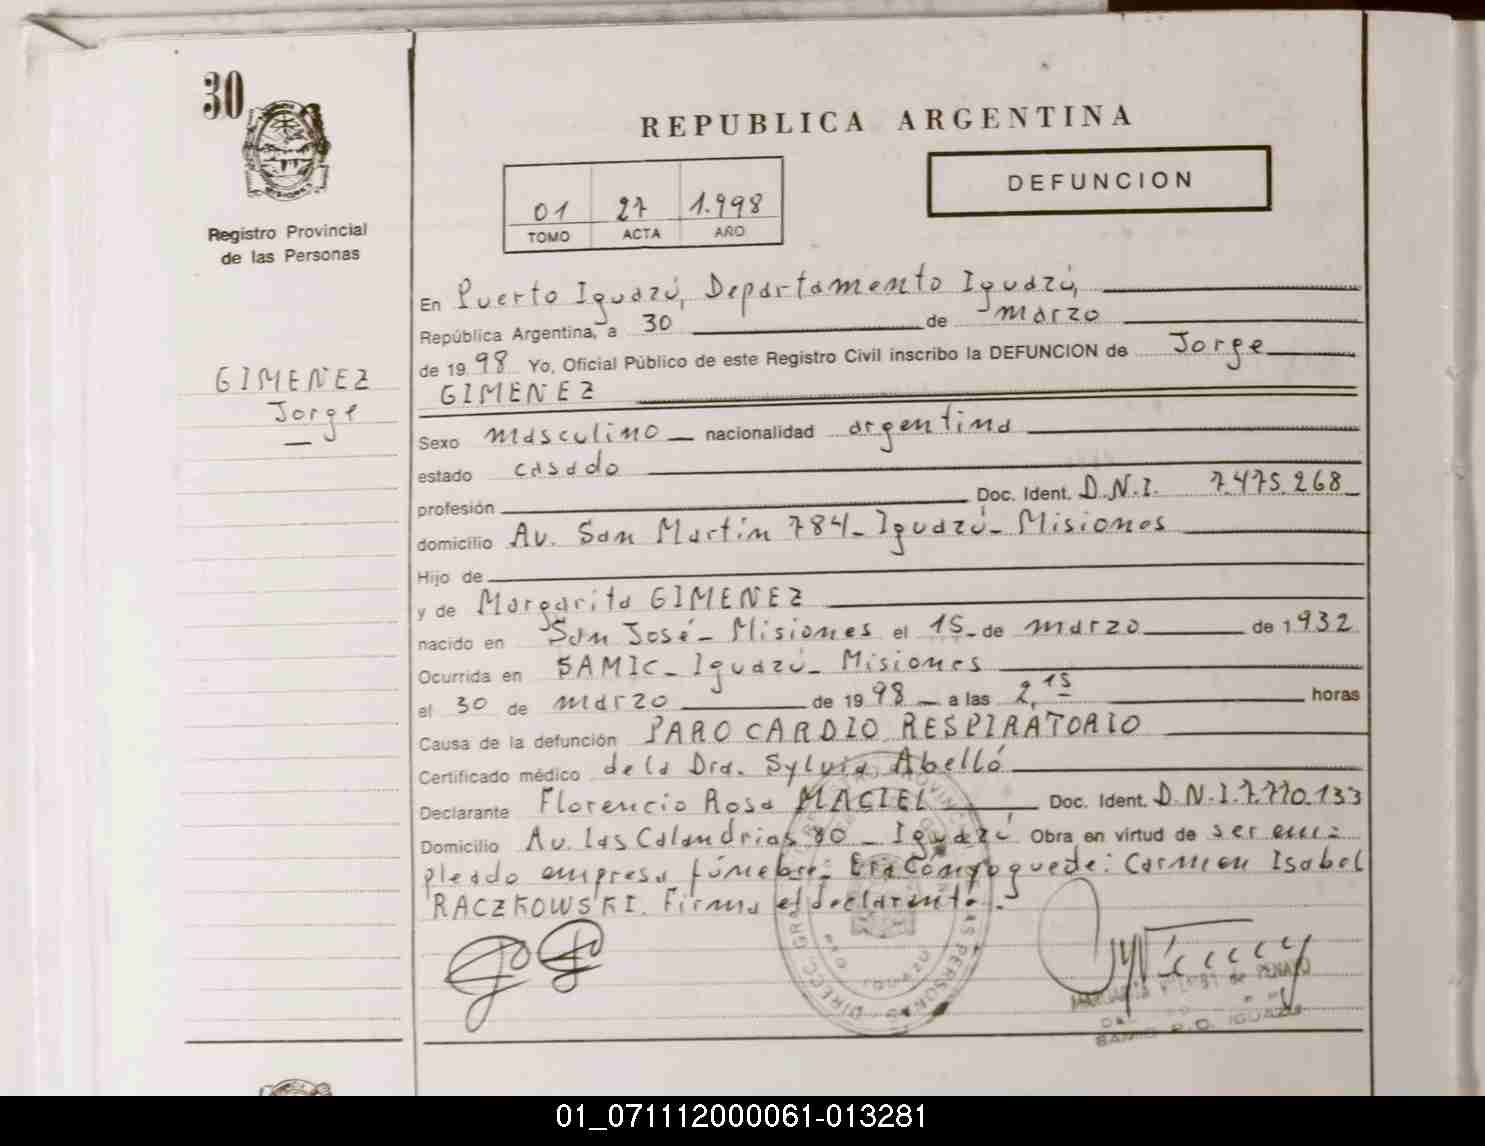 30
Registro Provincial
de las Personas
GIMENEZ
Jorge
REPUBLICA ARGENTINA
DEFUNCION
01 27 1.998
TOMO ACTA AÑO
En Puerto Iguazú, Departamento Iguazú,
República Argentina, a 30 de marzo
de 1998 Yo, Oficial Público de este Registro Civil inscribo la DEFUNCION de Jorge
GIMENEZ
Sexo masculino nacionalidad argentina
estado casado
profesión Doc. Ident. D.N.I. 7.475.268
domicilio Av. San Martín 784 - Iguazú - Misiones
Hijo de
y de Margarita GIMENEZ
nacido en San José - Misiones el 15 de marzo de 1932
Ocurrida en SAMIC - Iguazú - Misiones
el 30 de marzo de 1998 a las 2,15 horas
Causa de la defunción PARO CARDIO RESPIRATORIO
Certificado médico de la Dra. Sylvia Abelló
Declarante Florencio Rosa MACIEL Doc. Ident. D.N.I. 7.770.133
Domicilio Av. Las Calandrias 80 - Iguazú Obra en virtud de ser em=
pleado empresa fúnebre. Era cónyuge de: Carmen Isabel
RACZKOWSKI. Firma el declarante.
01_071112000061-013281